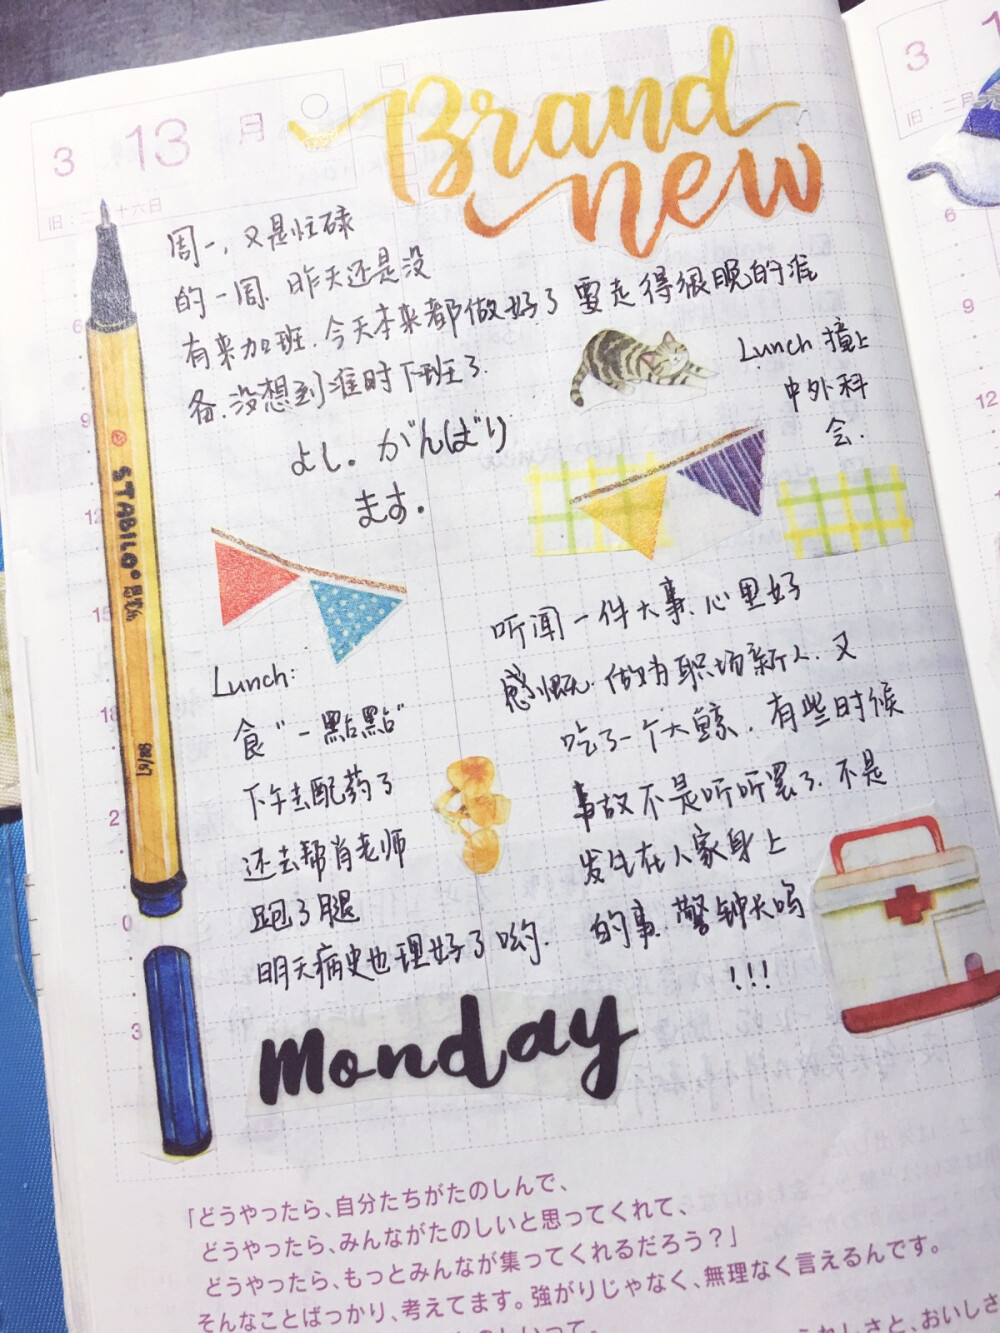 3 13 月
旧：二 十六日
Brand
new
周一，又是忙碌
的一周. 昨天还是没
有来加班. 今天本来都做好了要走得很晚的准
备.没想到准时下班了.
よし。がんばり
ます。
Lunch 撞上
中外科
会.
STABILO®
88/67
Lunch:
食“一點點”
下午去配药了
还去帮肖老师
跑了腿
明天病史也理好了哟.
听闻一件大事.心里好
感慨. 做为职场新人.又
吃了一个大鲸. 有些时候
事故不是听听罢了.不是
发生在人家身上
的事.警钟长鸣
!!!
Monday
「どうやったら、自分たちがたのしんで、
どうやったら、みんながたのしいと思ってくれて、
どうやったら、もっとみんなが集ってくれるだろう？」
そんなことばっかり、考えてます。強がりじゃなく、無理なく言えるんです。
6
9
12
15
18
21
0
3
3 1
旧：二月
6
9
12
さと、おいしさ